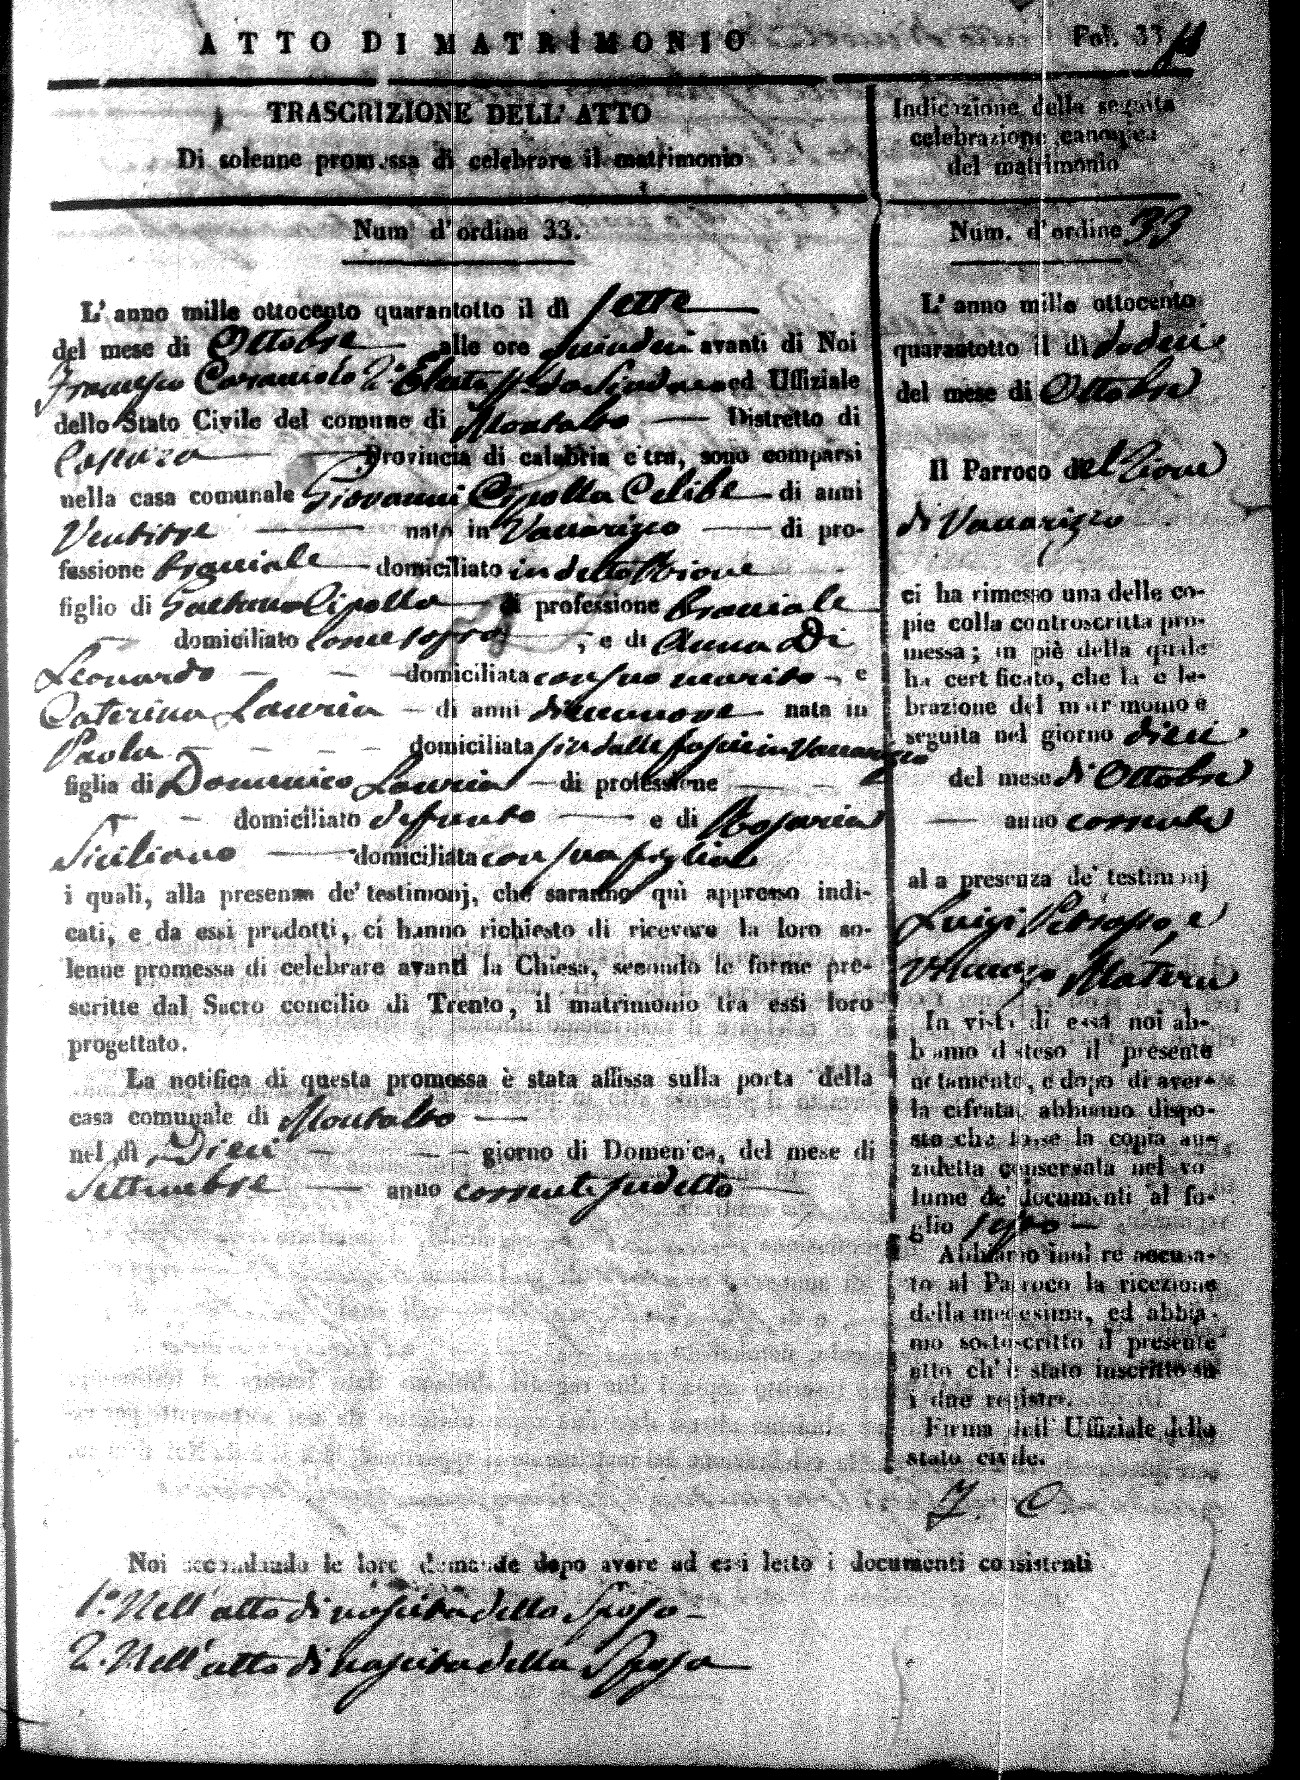 ATTO DI MATRIMONIO
Fol. 33
TRASCRIZIONE DELL' ATTO
Di solenne promessa di celebrare il matrimonio
Num. d'ordine 33.
L' anno mille ottocento quarantotto il dì sette
del mese di Ottobre alle ore quindici avanti di Noi
Francesco Caracciolo 2.° Eletto ff. da Sindaco ed Uffiziale
dello Stato Civile del comune di Montalto Distretto di
Cosenza Provincia di calabria citra, sono comparsi
nella casa comunale Giovanni Cipolla Celibe di anni
Ventitre nato in Vaccarizzo di pro-
fessione bracciale domiciliato in detto Rione
figlio di Gaetano Cipolla di professione Bracciale
domiciliato come sopra ; e di Anna Di
Leonardo domiciliata con suo marito , e
Caterina Lauria di anni diecianove nata in
Paola domiciliata sin dalle fascie in Vaccarizzo
figlia di Domenico Lauria di professione
domiciliato defunto e di Rosaria
Siciliano domiciliata con sua figlia
i quali, alla presenza de' testimonj, che saranno quì appresso indi-
cati, e da essi prodotti, ci hanno richiesto di ricevere la loro so-
lenne promessa di celebrare avanti la Chiesa, secondo le forme pre-
scritte dal Sacro concilio di Trento, il matrimonio tra essi loro
progettato.
La notifica di questa promessa è stata affissa sulla porta della
casa comunale di Montalto
nel dì Dieci giorno di Domenica, del mese di
Settembre anno corrente sudetto
Indicazione della seguita
celebrazione canonica
del matrimonio
Num. d'ordine 33
L' anno mille ottocento
quarantotto il dì dodici
del mese di Ottobre
Il Parroco del Rione
di Vaccarizzo
ci ha rimesso una delle co-
pie colla controscritta pro-
messa; in piè della quale
ha certificato, che la cele-
brazione del matrimonio è
seguita nel giorno dieci
del mese di Ottobre
anno corrente
alla presenza de' testimonj
Luigi Petrasso, e
Vincenzo Matera
In vista di essa noi ab-
biamo disteso il presente
notamento, e dopo di aver-
la cifrata, abbiamo dispo-
sto che fosse la copia an-
zidetta conservata nel vo
lume de' documenti al fo-
glio
Abbiamo inoltre accusa-
to al Parroco la ricezione
della medesima, ed abbia-
mo sottoscritto il presente
atto ch' è stato inscritto su
i due registri.
Firma dell' Uffiziale dello
stato civile.
F. C.
Noi secondando le loro domande dopo avere ad essi letto i documenti consistenti
1.° Nell' atto di nascita dello Sposo
2. Nell' atto di nascita della Sposa